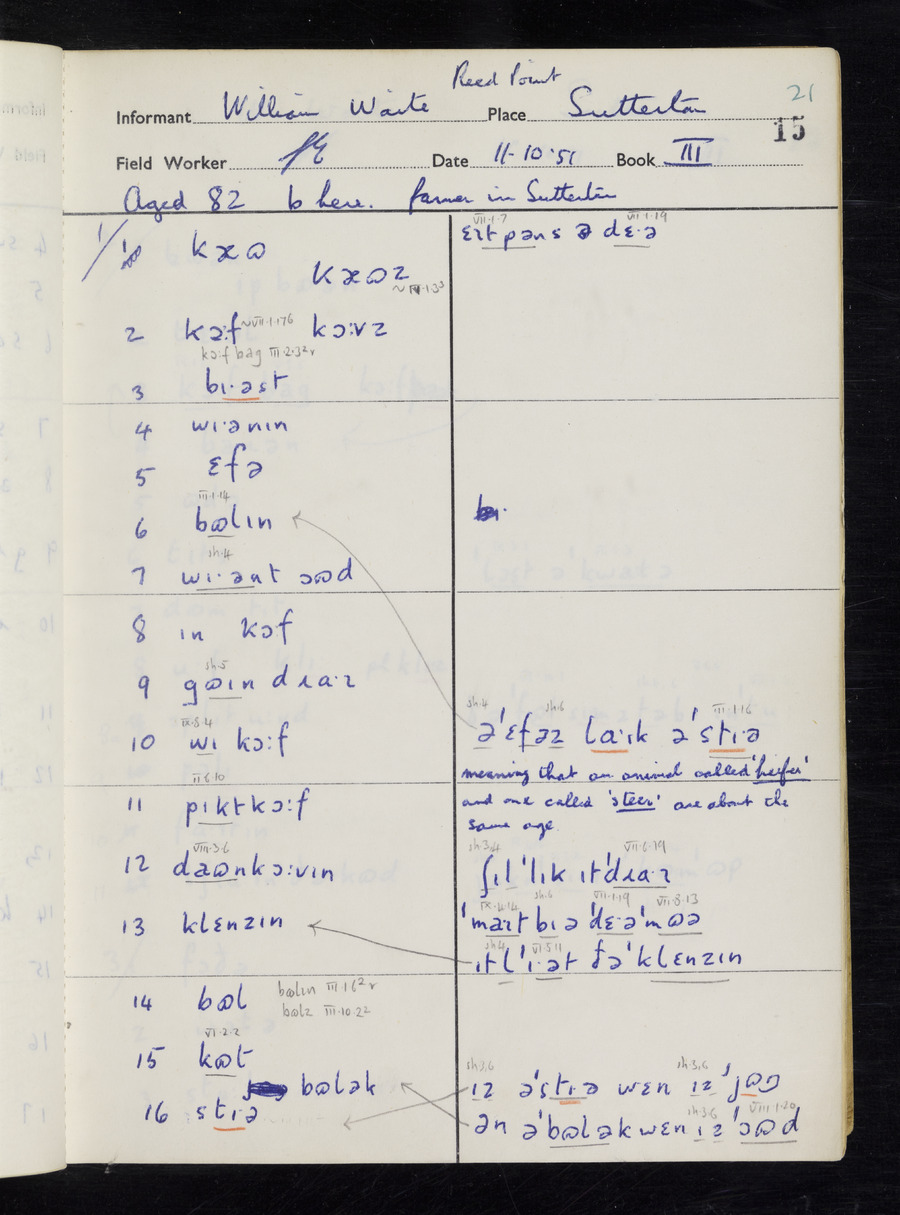 Reed Point
21
Informant William Waite Place Sutterton
15
Field Worker Date 11·10·51 Book III
Aged 82 b here. farmer in Sutterton
1/ 1 kæʊ
kæʊz
~ IV·1·33
2 kɔ:f ~VII·1·176 kɔ:vz
kɔ:f bag III·2·3² v
3 bɪ·əst
4 wɪ·ənɪn
5 ɛfə
III·1·14
6 bʊlɪn
sh·4
7 wɪ·ənt ɔʊd
8 ɪn kɔf
sh·5
9 gʊɪn dɹaɪ
IX·8·4
10 wɪ kɔ:f
II 6 10
11 pɪktkɔ:f
VIII·3·6
12 daʊnkɔ:vɪn
13 klɛnzɪn
14 bʊl bʊlɪn III·1·6² v
bʊlz III·10·22
VI·2·2
15 kʊt
bʊlək
16 stɪə
VII·1·7 VII·1·19
ɛɪtpəns ə dɛ·ə
sh·4 sh·6 III·1·16
ə'ɛfəz la·ɪk ə'stɪə
meaning that an animal called 'heifer'
and one called 'steer' are about the
same age.
sh·3,4 VII·6·19
ʃɪl 'lɪk ɪt'dɹaɪ
IX·4·14 sh·6 VII·1·19 VII·8·13
'maɪt bɪə 'dɛ·ə'mʊə
sh·4 VI·5·11
ɪtl'i·ət fə'klɛnzɪn
sh·3,6 sh·3,6
ɪz ə'stɪə wɛn ɪz 'jʊŋ
sh·3·6 VIII·1·20
ən ə'bʊləkwɛn ɪz 'ɔʊd